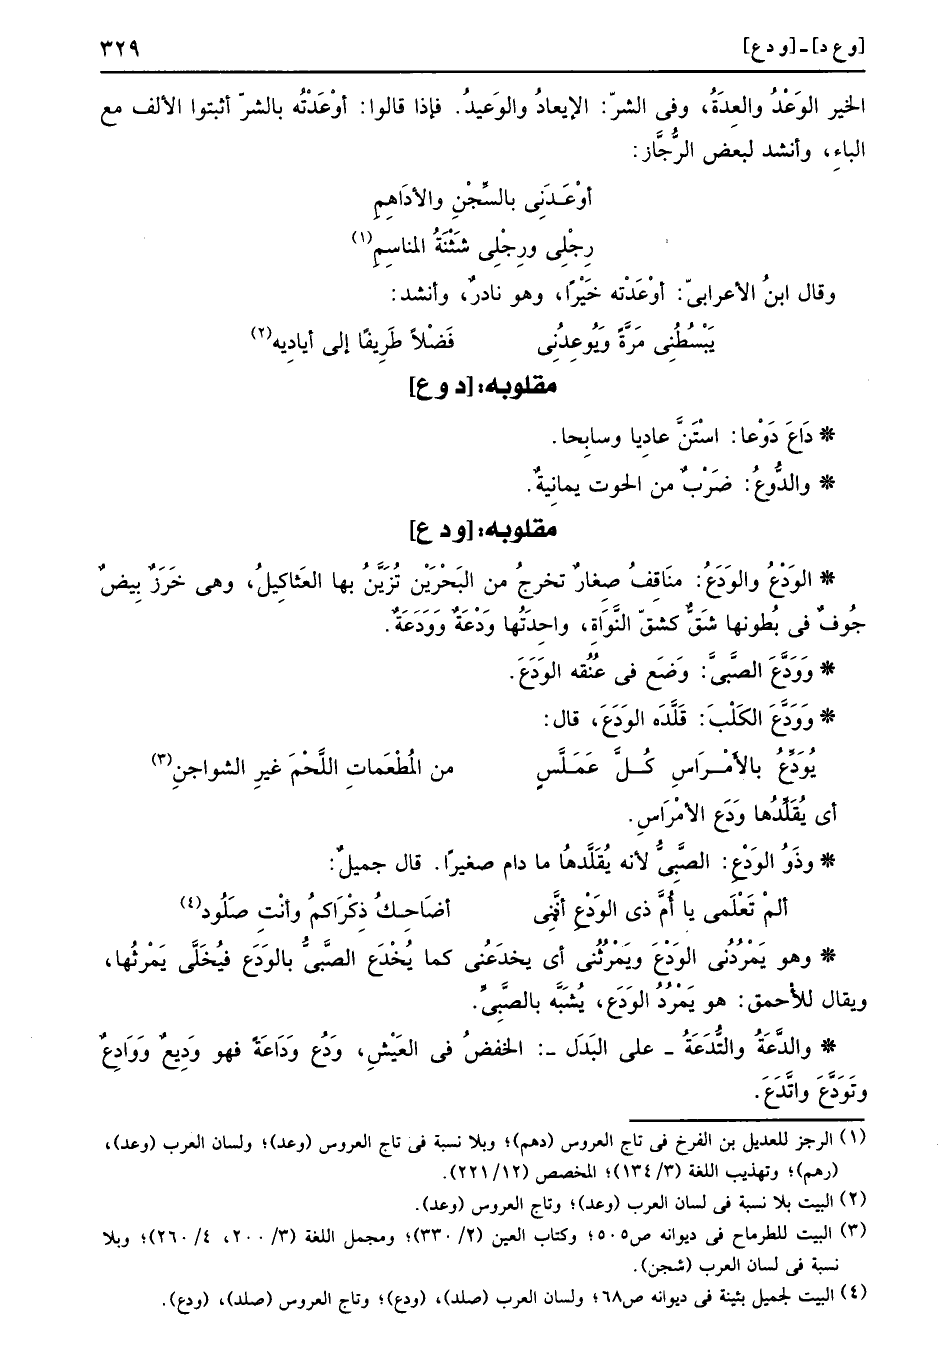 [وع د]ـ[ودع] ٣٢٩
الخير الوَعْدُ والعِدَةُ، وفى الشرّ: الإيعادُ والوَعيدُ. فإذا قالوا: أوْعَدْتُه بالشرّ أثبتوا الألف مع
الباءِ، وأنشد لبعض الرُّجَّاز:
أوْعَـدَنِى بالسِّجْنِ والأدَاهِمِ
رِجْلِى ورِجْلِى شَثْنَةُ المناسِمِ(١)
وقال ابنُ الأعرابىّ: أوْعَدْته خَيْرًا، وهو نادرٌ، وأنشد:
يَبْسُطُنِى مَرَّةً ويُوعِدُنِى فَضْلاً طَرِيفًا إلى أياديِه(٢)
مقلوبه: [د و ع]
* دَاعَ دَوْعا: استَنَّ عاديا وسابِحا.
* والدُّوعُ: ضَرْبٌ من الحوت يمانِيةٌ.
مقلوبه: [ود ع]
* الوَدْعُ والوَدَعُ: مناقِفُ صِغارٌ تخرجُ من البَحْرَيْن تُزَيَّنُ بها العَثاكيلُ، وهى خَرَزٌ بِيضٌ
جُوفٌ فى بُطونها شَقٌّ كشقّ النَّوَاةِ، واحِدَتُها ودْعَةٌ وَودَعَةٌ.
* وَوَدَّعَ الصبىَّ: وَضَع فى عُنُقه الوَدَعَ.
* وَوَدَّعَ الكَلْبَ: قَلَّدَه الوَدَعَ، قال:
يُوَدِّعُ بالأمْـرَاسِ كُـلَّ عَمَـلَّسٍ من المُطْعَماتِ اللَّحْمَ غيرِ الشواجنِ(٣)
أى يُقَلِّدُها وَدَع الأمْرَاسِ.
* وذَوُ الودَعْ: الصَّبِىُّ لأنه يُقَلَّدهُا ما دام صغيرًا. قال جميلٌ:
ألمْ تَعْلَمى يا أُمَّ ذى الوَدْعِ أنَّنِى أضَاحِـكُ ذِكْرَاكمُ وأنْتِ صلُود(٤)
* وهو يَمْرُدُنى الوَدْعَ ويَمْرُثُنى أى يخدعَنُى كما يُخْدَع الصبَّىُّ بالوَدَعِ فيُخَلَّى يَمْرثُها،
ويقال للأحمق: هو يَمْرُدُ الودَع، يُشَبَّه بالصَّبِىِّ.
* والدَّعَةُ والتُّدَعَةُ ـ على البَدَل ـ: الخفضُ فى العَيْشِ، ودُع وَدَاعَةً فهو وَدِيعٌ وَوَادِعٌ
وتَوَدَّعَ واتَّدَعَ.
(١) الرجز للعديل بن الفرخ فى تاج العروس (دهم)؛ وبلا نسبة فى تاج العروس (وعد)؛ ولسان العرب (وعد)،
(رهم)؛ وتهذيب اللغة (٣/ ١٣٤)؛ المخصص (١٢/ ٢٢١).
(٢) البيت بلا نسبة فى لسان العرب (وعد)؛ وتاج العروس (وعد).
(٣) البيت للطرماح فى ديوانه ص٥٠٥؛ وكتاب العين (٢/ ٣٣٠)؛ ومجمل اللغة (٣/ ٢٠٠، ٤/ ٢٦٠)؛ وبلا
نسبة فى لسان العرب (شجن).
(٤) البيت لجميل بثينة فى ديوانه ص٦٨؛ ولسان العرب (صلد)، (ودع)؛ وتاج العروس (صلد)، (ودع).